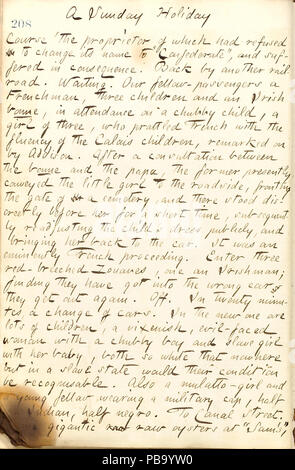 A Sunday Holiday
208
Course the proprietor of which had refused
to change its name to "Confederate", and suf-
fered in consequence. Back by another rail
road. Waiting. Our fellow-passengers a
Frenchman, three children and an Irish
bonne, in attendance on a chubby child, a
girl of three, who prattled French with the
fluency of the Calais children, remarked on
by Addison. After a consultation between
the bonne and the papa, the former presently
conveyed the little girl to the roadside, fronting
the gate of a cemetery, and there stood dis-
creetly before her for a short time, subsequent-
ly readjusting the child's dress publicly, and
bringing her back to the car. It was an
eminently French proceeding. Enter three
red-breeched Zouaves, one an Irishman;
finding they have got into the wrong cars
they get out again. Off. In twenty minu-
tes, a change of cars. In the new one are
lots of children, a vixenish, evil-faced
woman with a chubby boy and slave girl
with her baby, both so white that nowhere
but in a slave state would their condition
be recognisable. Also a mulatto-girl and
young fellow wearing a military cap, half
Indian, half negro. To Canal Street.
gigantic raw oysters at "Sam's"
alamy
Image ID: PB9YW0
www.alamy.com